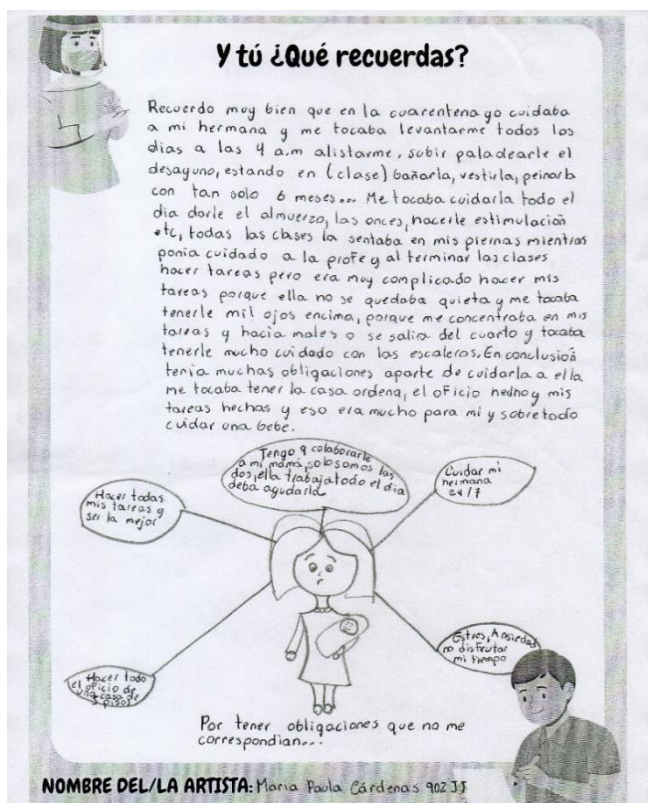 Y tú ¿Qué recuerdas?
Recuerdo muy bien que en la cuarentena yo cuidaba
a mi hermana y me tocaba levantarme todos los
dias a las 4 a.m alistarme, subir paladearle el
desayuno, estando en (clase) bañarla, vestirla, peinarla
con tan solo 6 meses... Me tocaba cuidarla todo el
dia darle el almuerzo, las onces, hacerle estimulación
etc, todas las clases la sentaba en mis piernas mientras
ponia cuidado a la profe y al terminar las clases
hacer tareas pero era muy complicado hacer mis
tareas porque ella no se quedaba quieta y me tocaba
tenerle mil ojos encima, porque me concentraba en mis
tareas y hacia males o se salia del cuarto y tocaba
tenerle mucho cuidado con las escaleras. En conclusión
tenia muchas obligaciones aparte de cuidarla a ella
me tocaba tener la casa ordena, el oficio hecho y mis
tareas hechas y eso era mucho para mi y sobre todo
cuidar una bebe.
Tengo q colaborarle
a mi mamá, solo somos las
dos, ella trabaja todo el dia
deba ayudarla
Hacer todas
mis tareas y
ser la mejor
Cuidar mi
hermana
24/7
Hacer todo
el oficio de
una casa de
3 pisos
Estres, Ansiedad
no disfrutar
mi tiempo
Por tener obligaciones que no me
correspondian...
NOMBRE DEL/LA ARTISTA: Maria Paula Cárdenas 902 JJ